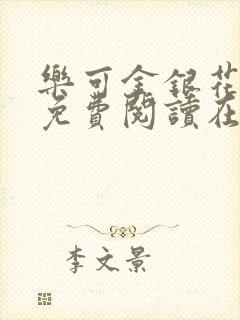 樂可金銀花
免費閱讀在
李文景